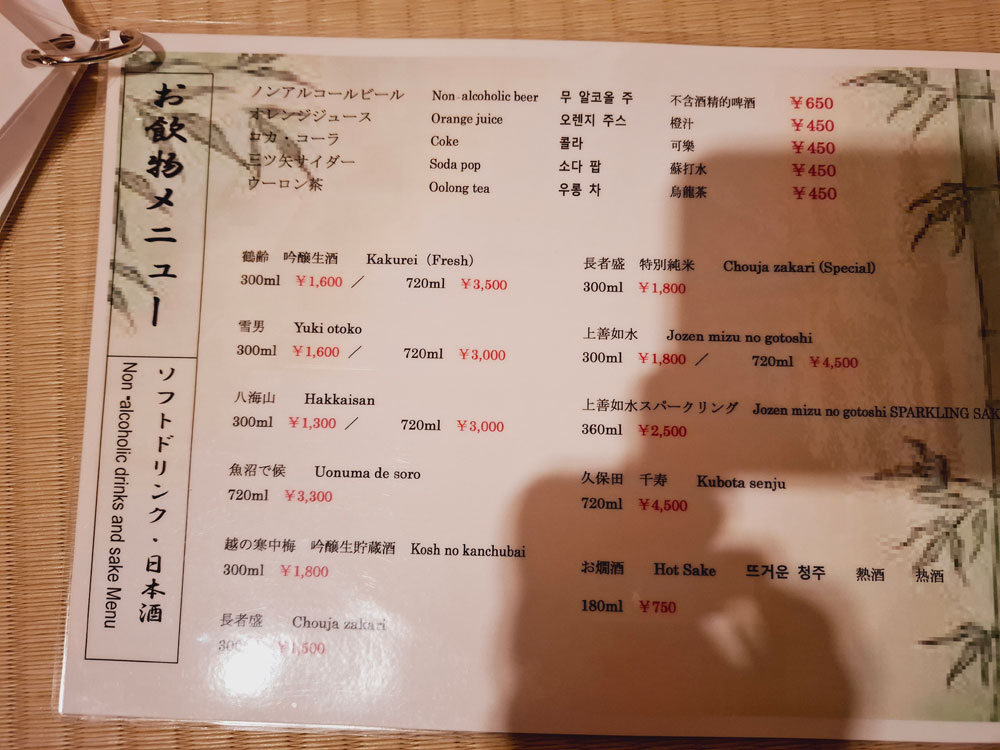 お飲物メニュー
ソフトドリンク・日本酒
Non-alcoholic drinks and sake Menu
ノンアルコールビール Non-alcoholic beer 무 알코올 주 不含酒精的啤酒 ￥650
オレンジジュース Orange juice 오렌지 주스 橙汁 ￥450
コカ・コーラ Coke 콜라 可樂 ￥450
三ツ矢サイダー Soda pop 소다 팝 蘇打水 ￥450
ウーロン茶 Oolong tea 우롱 차 烏龍茶 ￥450
鶴齢 吟醸生酒 Kakurei (Fresh)
300ml ￥1,600 ／ 720ml ￥3,500
雪男 Yuki otoko
300ml ￥1,600 ／ 720ml ￥3,000
八海山 Hakkaisan
300ml ￥1,300 ／ 720ml ￥3,000
魚沼で候 Uonuma de soro
720ml ￥3,300
越の寒中梅 吟醸生貯蔵酒 Kosh no kanchubai
300ml ￥1,800
長者盛 Chouja zakari
300ml ￥1,500
長者盛 特別純米 Chouja zakari (Special)
300ml ￥1,800
上善如水 Jozen mizu no gotoshi
300ml ￥1,800 ／ 720ml ￥4,500
上善如水スパークリング Jozen mizu no gotoshi SPARKLING SAK
360ml ￥2,500
久保田 千寿 Kubota senju
720ml ￥4,500
お燗酒 Hot Sake 뜨거운 청주 熱酒 热酒
180ml ￥750